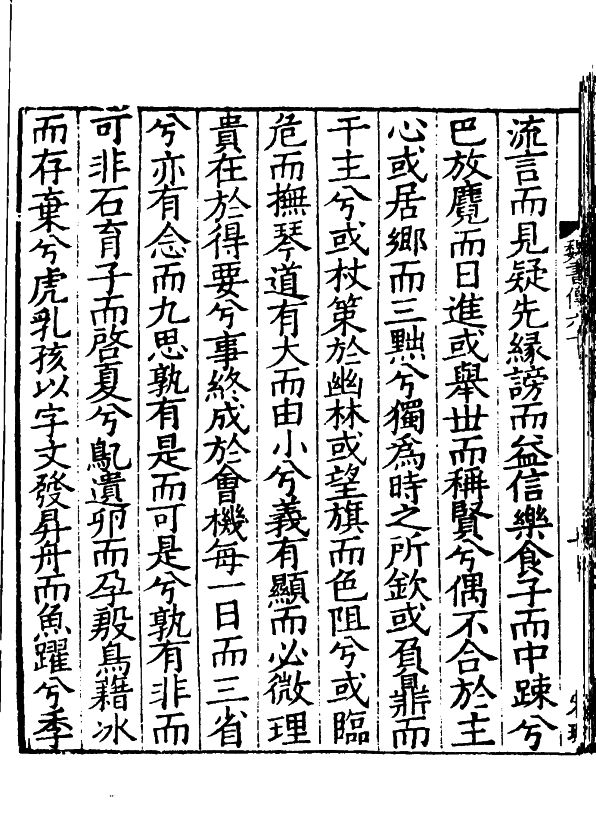 流言而見疑先緣謗而益信樂食子而中踈兮
巴放麑而日進或舉世而稱賢兮偶不合於主
心或居鄉而三黜兮獨爲時之所欽或負鼎而
干主兮或杖策於幽林或望旗而色阻兮或臨
危而撫琴道有大而由小兮義有顯而必微理
貴在於得要兮事終成於會機每一日而三省
兮亦有念而九思孰有是而可是兮孰有非而
可非石育子而啓夏兮鳦遺卵而孕殷鳥藉冰
而存棄兮虎乳孩以字文發昇舟而魚躍兮季
魏書傳六